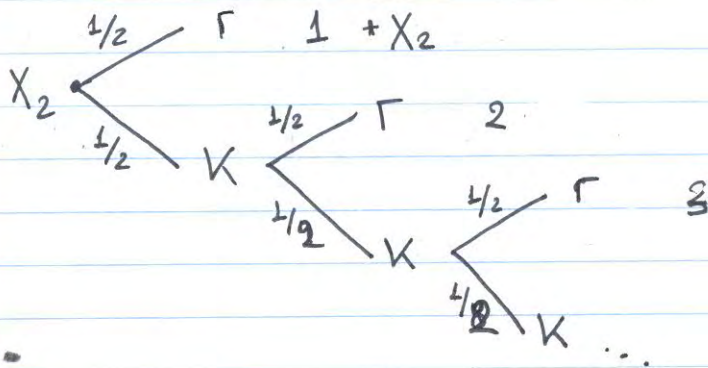 1/2 Γ 1 + X₂
X₂
1/2 K 1/2 Γ 2
1/2 K 1/2 Γ 3
1/2 K ...